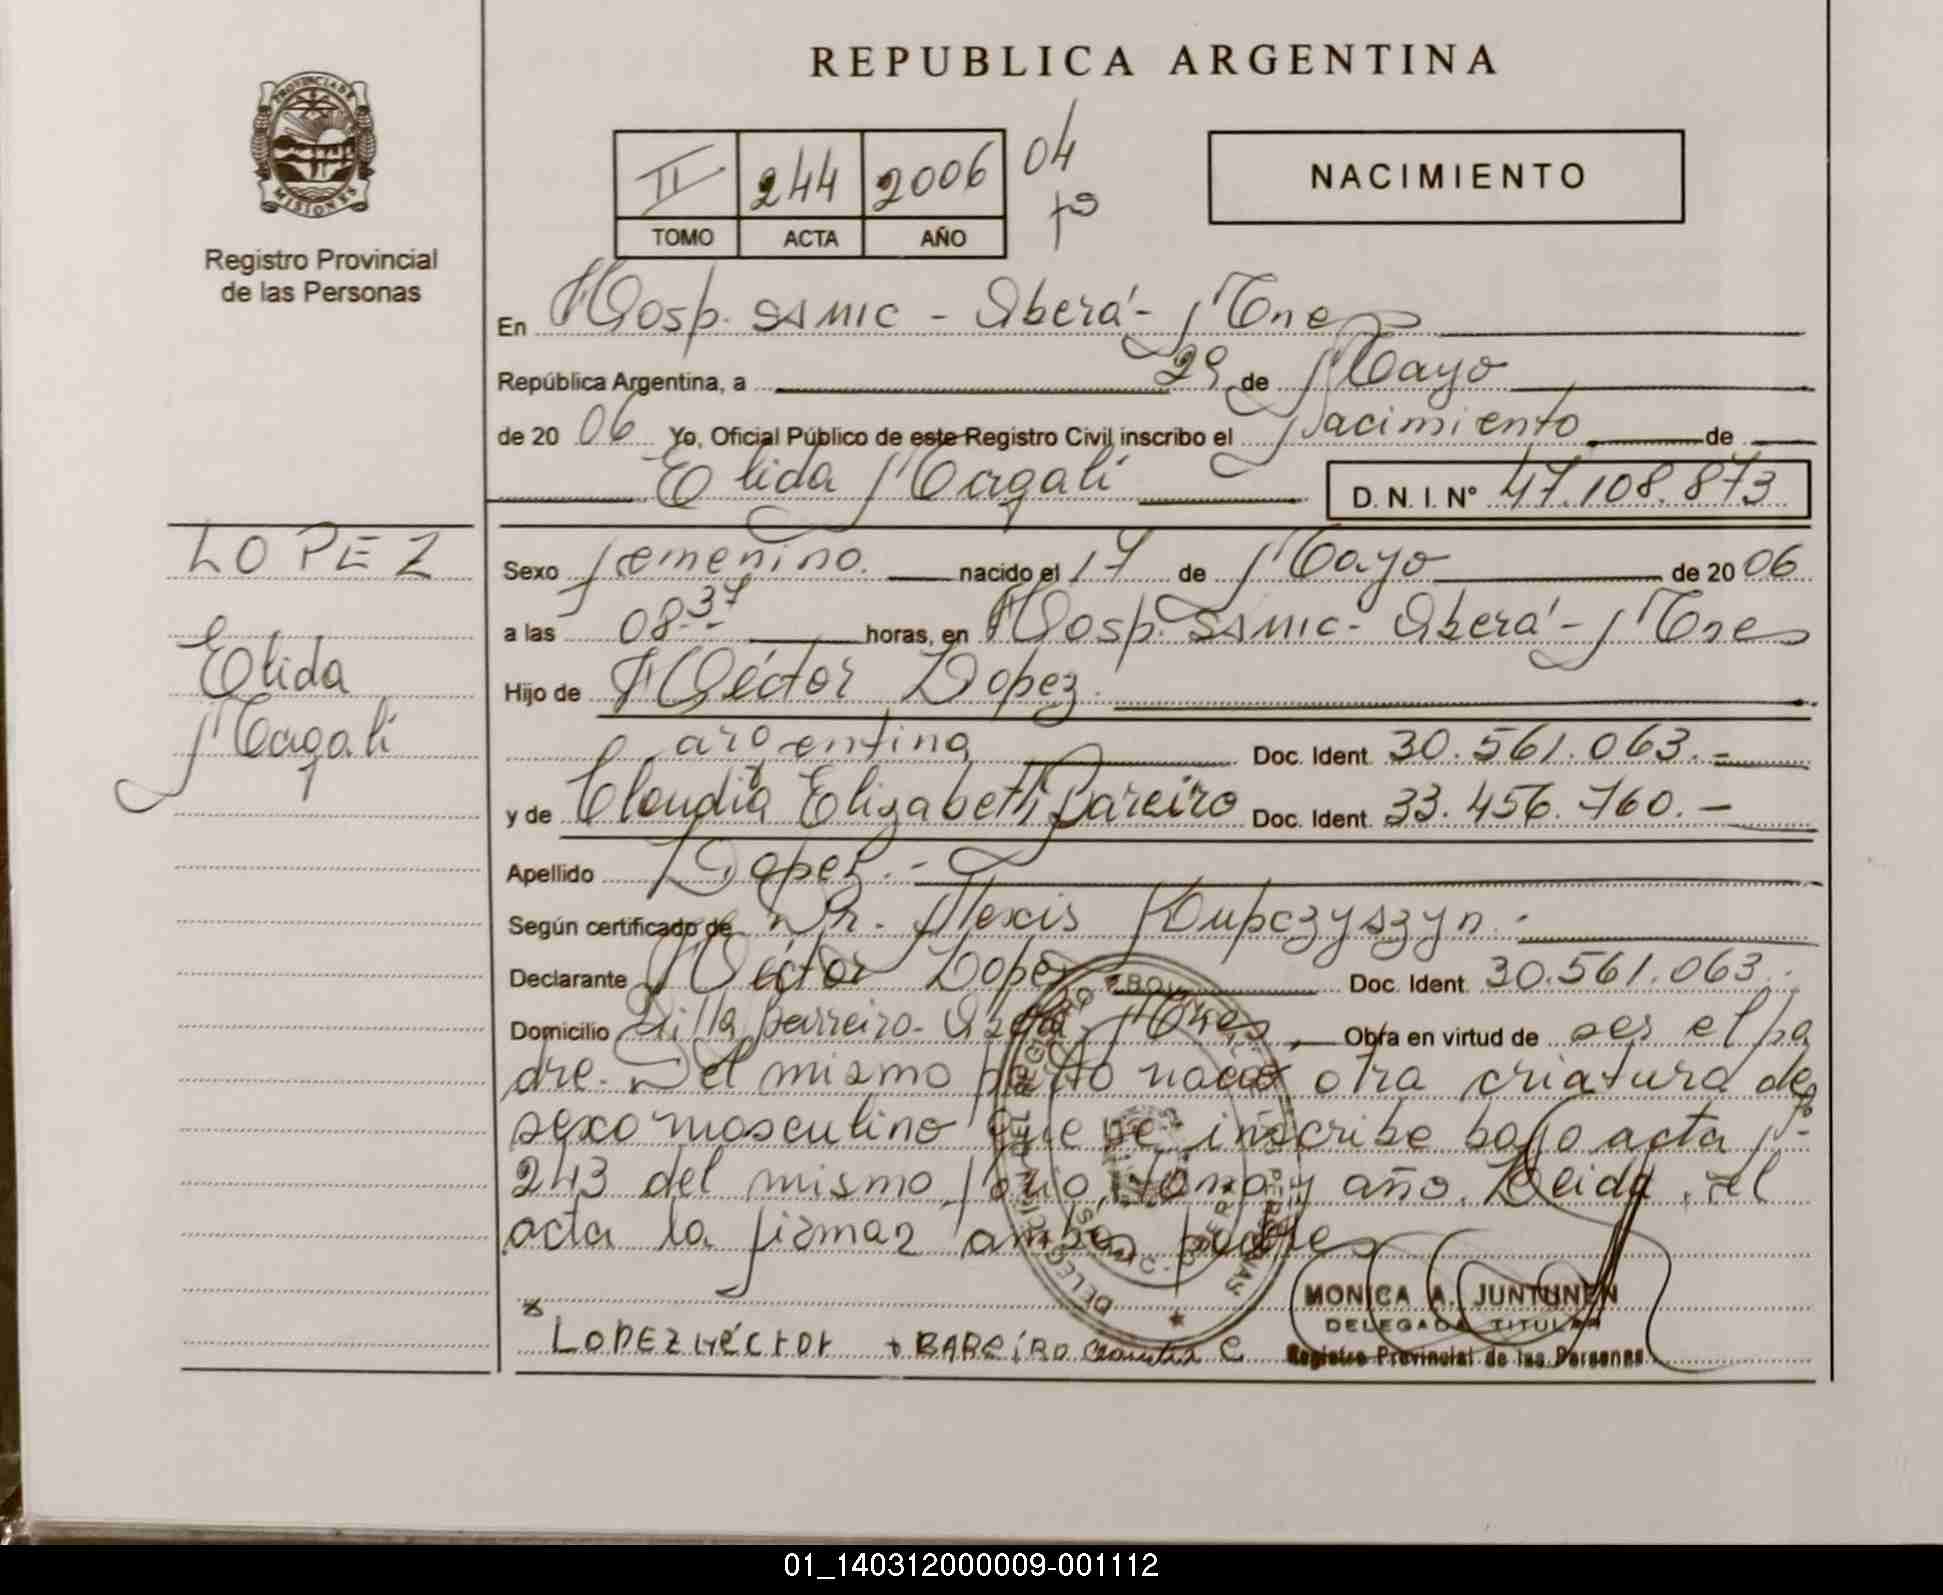 REPUBLICA ARGENTINA
PROVINCIA DE
MISIONES
Registro Provincial
de las Personas
II 244 2006 04
TOMO ACTA AÑO
NACIMIENTO
En Hosp. SAMIC - Oberá - Mnes
República Argentina, a 29 de Mayo
de 20 06 Yo, Oficial Público de este Registro Civil inscribo el Nacimiento de
Elida Magali D. N. I. Nº 47.108.873
LOPEZ
Elida
Magali
Sexo femenino. nacido el 17 de Mayo de 20 06
a las 08 37 horas, en Hosp. SAMIC - Oberá - Mnes
Hijo de Héctor Lopez.
argentina Doc. Ident. 30.561.063.-
y de Claudia Elizabeth Bareiro Doc. Ident. 33.456.760.-
Apellido Lopez.-
Según certificado de Dr. Alexis Kupczyszyn.-
Declarante Héctor Lopez Doc. Ident. 30.561.063.-
Domicilio Villa Barreiro - Oberá - Mnes, Obra en virtud de ser el pa
dre. Del mismo parto nació otra criatura de
sexo masculino que se inscribe bajo acta Nº
243 del mismo tomo y año. Leida el
acta la firman ambos padres
LOPEZ HéCTOR + BAREíRO Claudia E
MONICA A. JUNTUNEN
DELEGADA TITULAR
Registro Provincial de las Personas
01_140312000009-001112